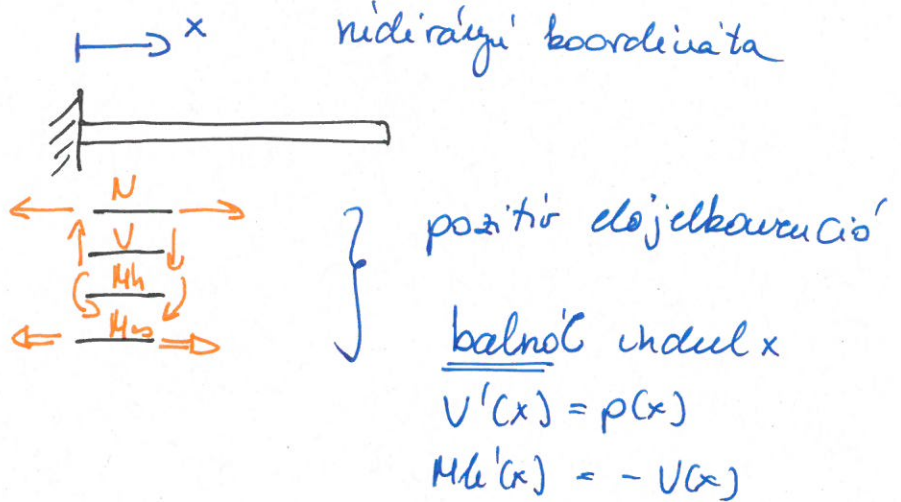 x rúdirányú koordináta
N
V
Mh
Mcs
} pozitív előjelkonvenció
balról indul x
V'(x) = p(x)
Mh'(x) = - V(x)